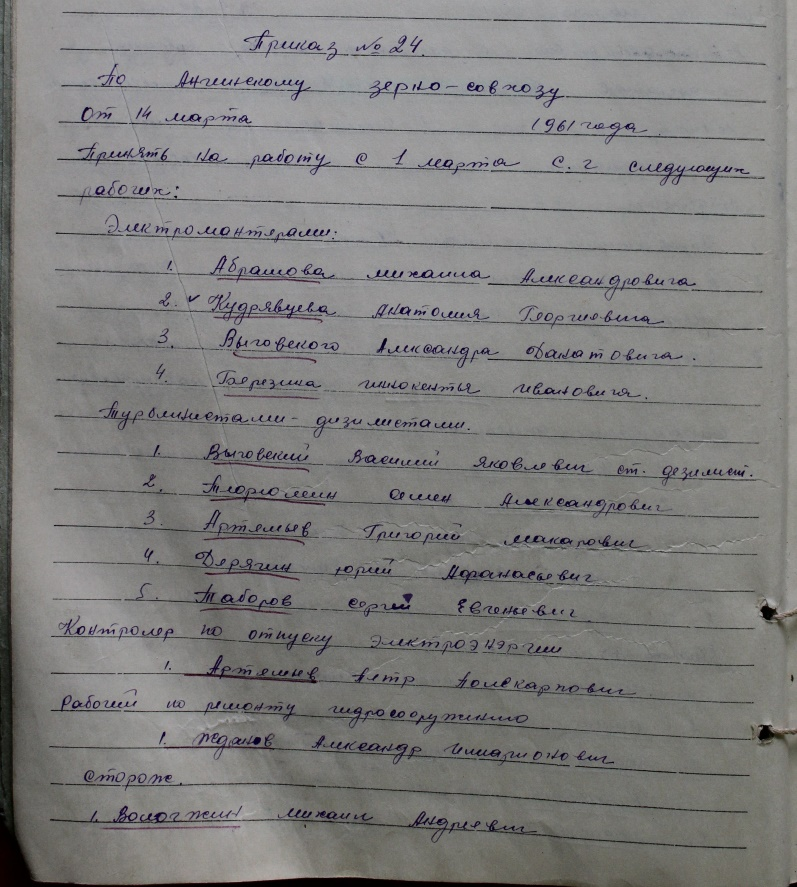 Приказ № 24.
По Ангинскому зерно-совхозу
От 14 марта 1961 года.
Принять на работу с 1 марта с. г следующих
рабочих:
Электромантерами:
1. Абрамова Михаила Александровича
2. ✓ Кудрявцева Анатолия Георгиевича
3. Выговского Александра Данатовича.
4. Березина Инокентья Ивановича.
Турбинистами - дизилистами.
1. Выговский Василий Яковлевич ст. дезилист.
2. Семен Александрович
3. Артемьев Григорий Макарович
4. Дерягин Юрий Афанасьевич
5. Таборов Сергей Евгеньевич.
Контролер по отпуску электроэнэргии
1. Артемьев Петр Поликарпович
Рабочий по ремонту гидросооружению
1. Жданов Александр Илларионович
Сторож.
1. Вологжин Михаил Андреевич